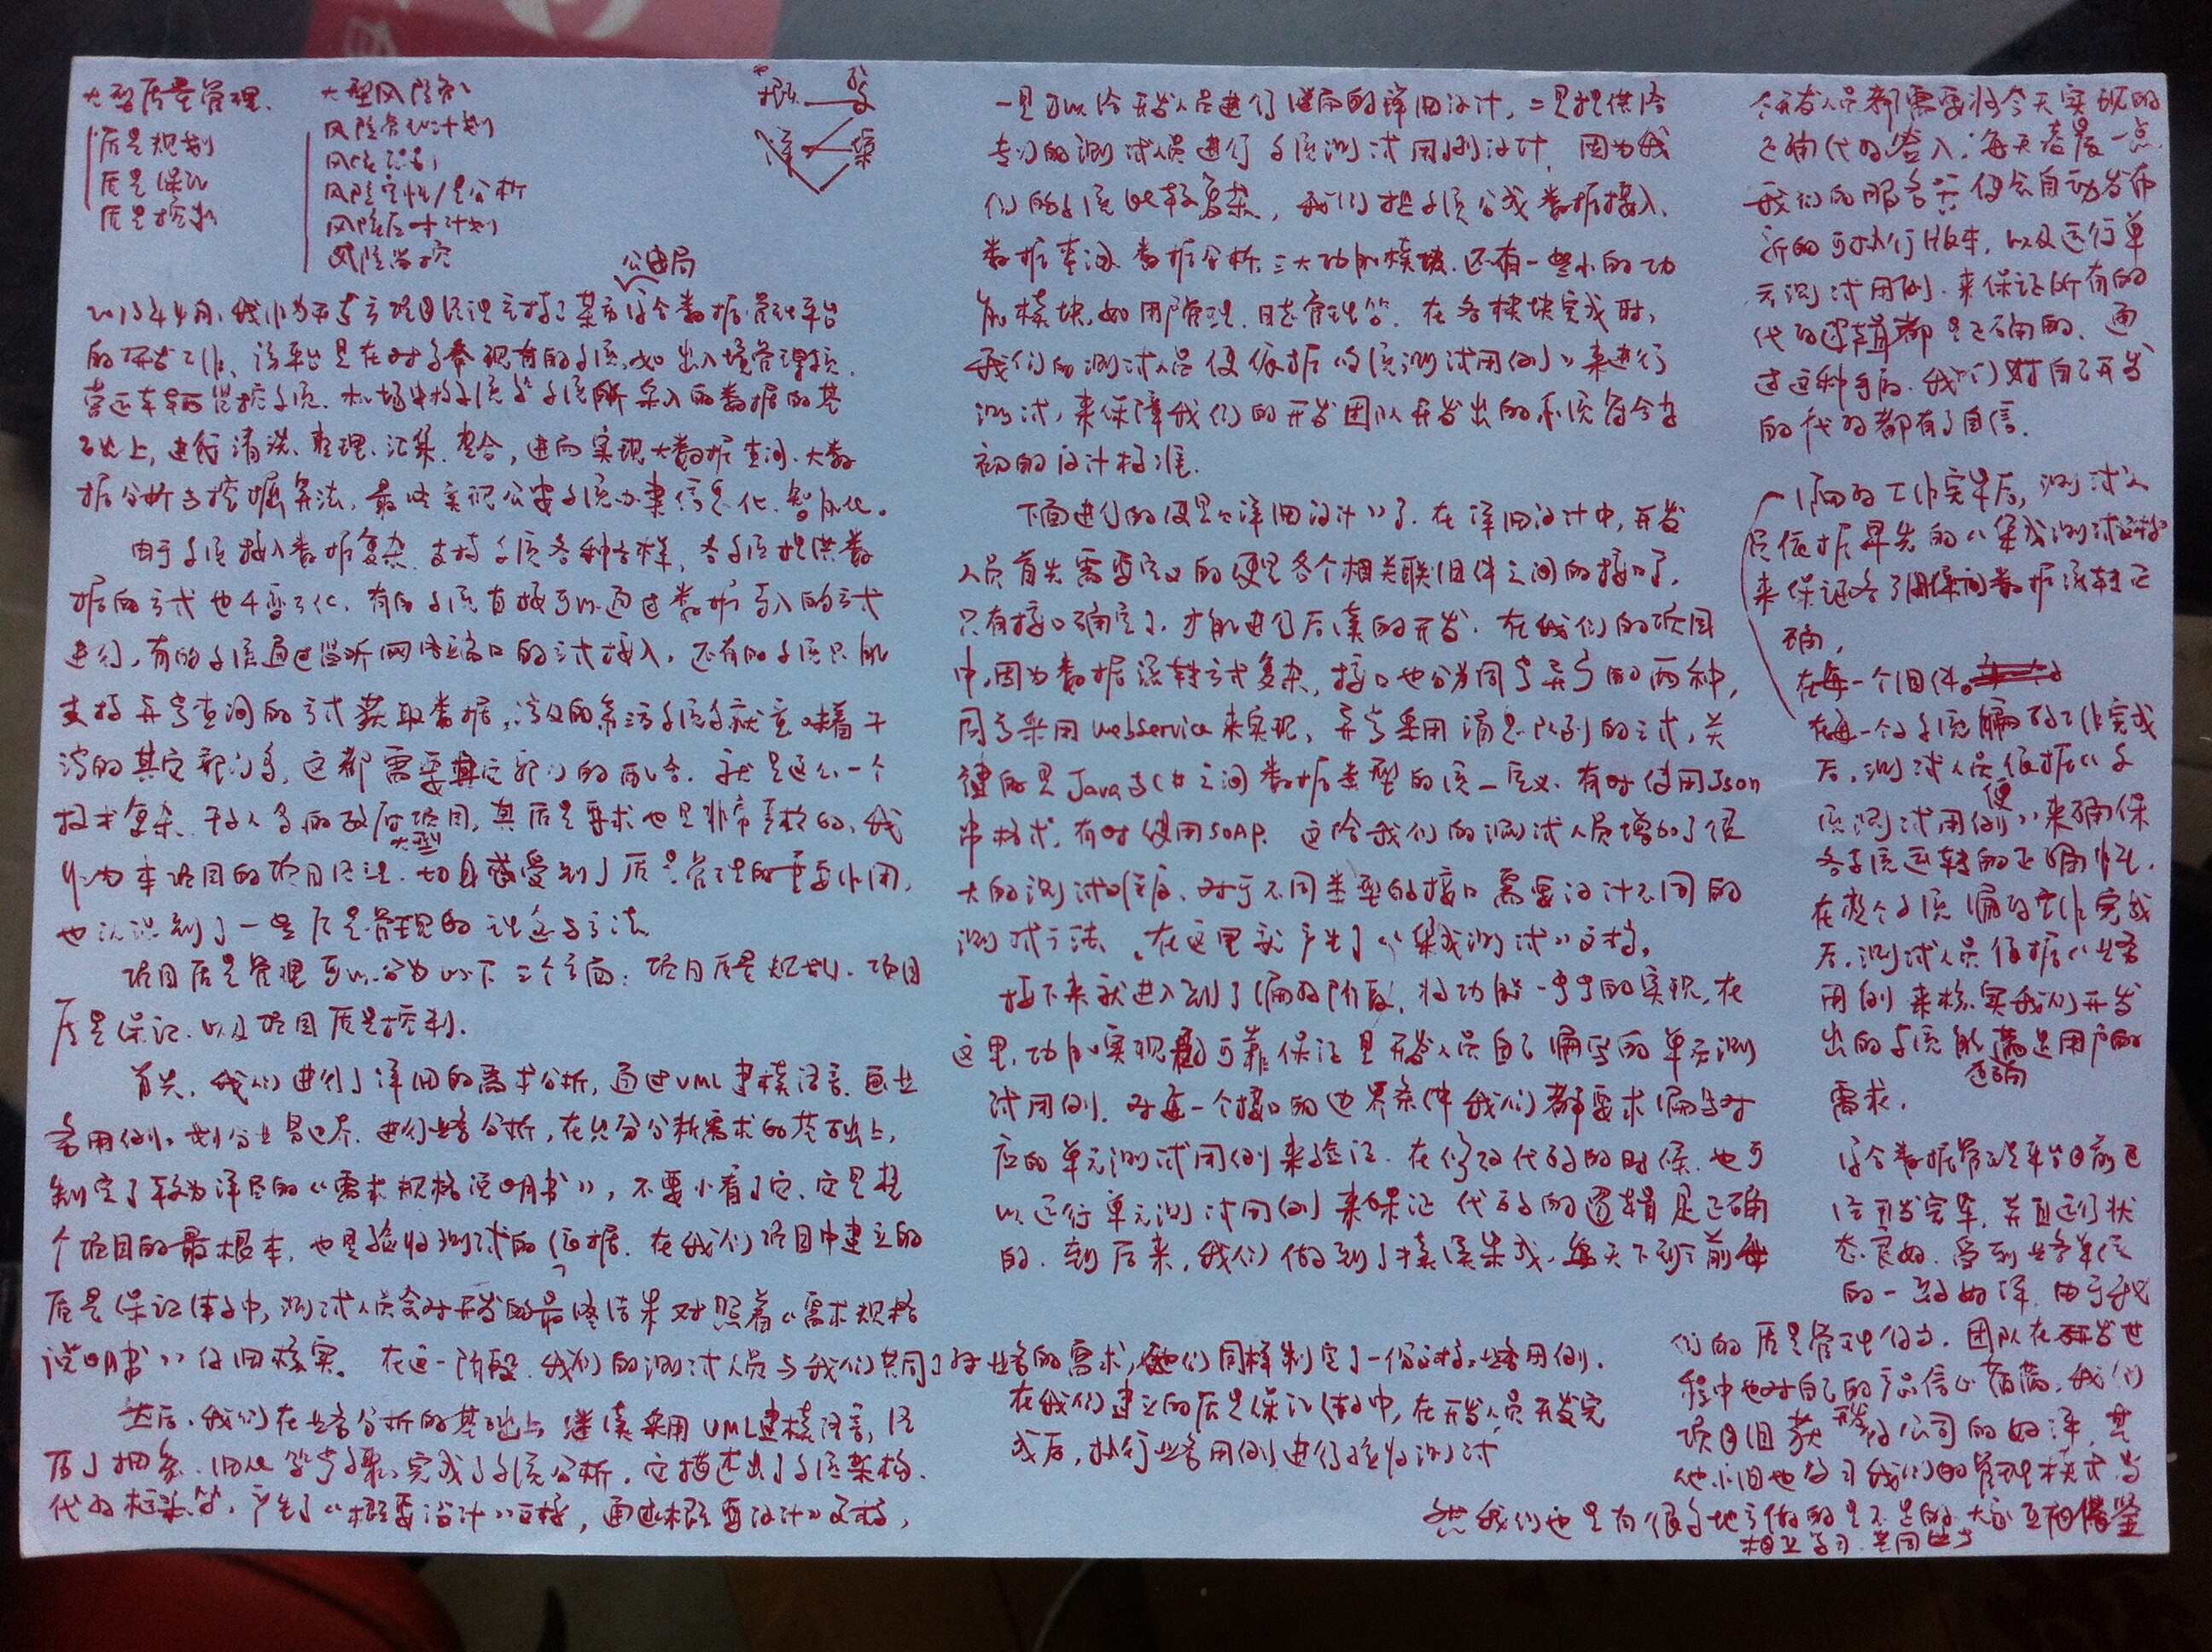 大型质量管理.
质量规划
质量保证
质量控制
大型风险
风险管理计划
风险识别
风险定性/量分析
风险应对计划
风险监控
概 验
详 集
公安局
2013年4月,我作为承建方项目经理主持了某市综合数据管理平台
的研发工作、该平台是在对多套现有的系统,如出入境管理系统.
营运车辆监控系统、机场系统等系统所采入的数据的基
础上,进行清洗、整理、汇集、整合,进而实现大数据查询、大数
据分析与挖掘算法,最终实现公安系统办案信息化、智能化。
由于系统接入数据复杂.支持系统各种各样,各系统提供数
据的方式也千变万化、有的系统直接可以通过数据导入的方式
进行,有的系统通过监听网络端口的方式接入,还有的系统只能
支持异步查询的方式获取数据,涉及的系统多就意味着干
涉的其它部门多,这都需要其它部门的配合.就是这么一个
技术复杂、干涉人多的政府大型项目,其质量要求也是非常严格的、我
作为本项目的项目经理.切身感受到了质量管理的重要作用,
也认识到了一些质量管理的方法
项目质量管理可以分为以下三个方面:项目质量规划、项目
质量保证、以及项目质量控制.
首先,我们进行了详细的需求分析,通过UML建模语言.画业
务用例,划分业务边界.进行业务分析,在充分分析需求的基础上,
制定了较为详尽的《需求规格说明书》,不要小看了它.它是整
个项目的最根本,也是验收测试的依据.在我们项目中建立的
质量保证体系中,测试人员会对开发的最终结果对照着《需求规格
说明书》仔细核实。在这一阶段.我们的测试人员与我们共同了解业务的需求,他们同样制定了一份文档:业务用例.
在我们建立的质量保证体系中,在开发人员开发完
成后,执行业务用例进行验收测试
然后、我们在业务分析的基础上继续采用UML建模语言,经
历了抽象、细化等步骤,完成了系统分析.它描述出了系统架构、
代码框架等,产生了《概要设计》文档,通过《概要设计》文档,
一是可以给开发人员进行后面的详细设计,二是提供给
专门的测试人员进行系统测试用例设计,因为我
们的系统比较复杂,我们把系统分成数据接入、
数据查询、数据分析三大功能模块.还有一些小的功
能模块,如用户管理、日志管理等.在各模块完成时,
我们的测试人员便依据《系统测试用例》来进行
测试,来保障我们的开发团队开发出的系统符合当
初的设计标准.
下面进行的便是《详细设计》了.在详细设计中,开发
人员首先需要定义的便是各个相关联组件之间的接口了,
只有接口确定了,才能进行后续的开发.在我们的项目
中,因为数据流转方式复杂,接口也分为同步异步的两种,
同步采用webservice来实现,异步采用消息队列的方式,关
键的是Java与C#之间数据类型的统一定义.有时使用Json
串格式,有时使用SOAP.这给我们的测试人员增加了很
大的测试难度、对于不同类型的接口需要设计不同的
测试方法.在这里就产生了《集成测试》文档。
接下来就进入到了编码阶段,将功能一步步的实现,在
这里,功能实现的可靠保证是开发人员自己编写的单元测
试用例.对每一个接口的边界条件我们都要求编写对
应的单元测试用例来验证.在修改代码的时候.也可
以运行单元测试用例来保证代码的逻辑是正确
的.到后来,我们做到了持续集成,每天下班前每
个开发人员都需要将今天实现的
正确代码签入,每天凌晨一点
我们的服务器便会自动发布
新的可执行版本,以及运行单
元测试用例.来保证所有的
代码逻辑都是正确的.通
过这种手段.我们对自己开发
的代码都有了自信.
编码的工作完毕后,测试人
员依据早先的《集成测试文档》
来保证各个组件间数据流转正
确,
在每一个组件。
在每一个系统编码工作完成
后,测试人员便依据《系
统测试用例》来确保
各系统运转的正确性.
在整个系统编码工作完成
后,测试人员依据《业务
用例》来核实我们开发
出的系统能正确满足用户的
需求.
综合数据管理平台目前已
经开发完毕,并且运行状
态良好.受到业务单位
的一致好评.由于我
们的质量管理得当.团队在研发过
程中也对自己的产品信心满满,我们
项目组获得公司的好评,其
他小组也学习我们的管理模式.当
然我们也是有很多地方做的是不足的.大家互相借鉴
相互学习.共同进步